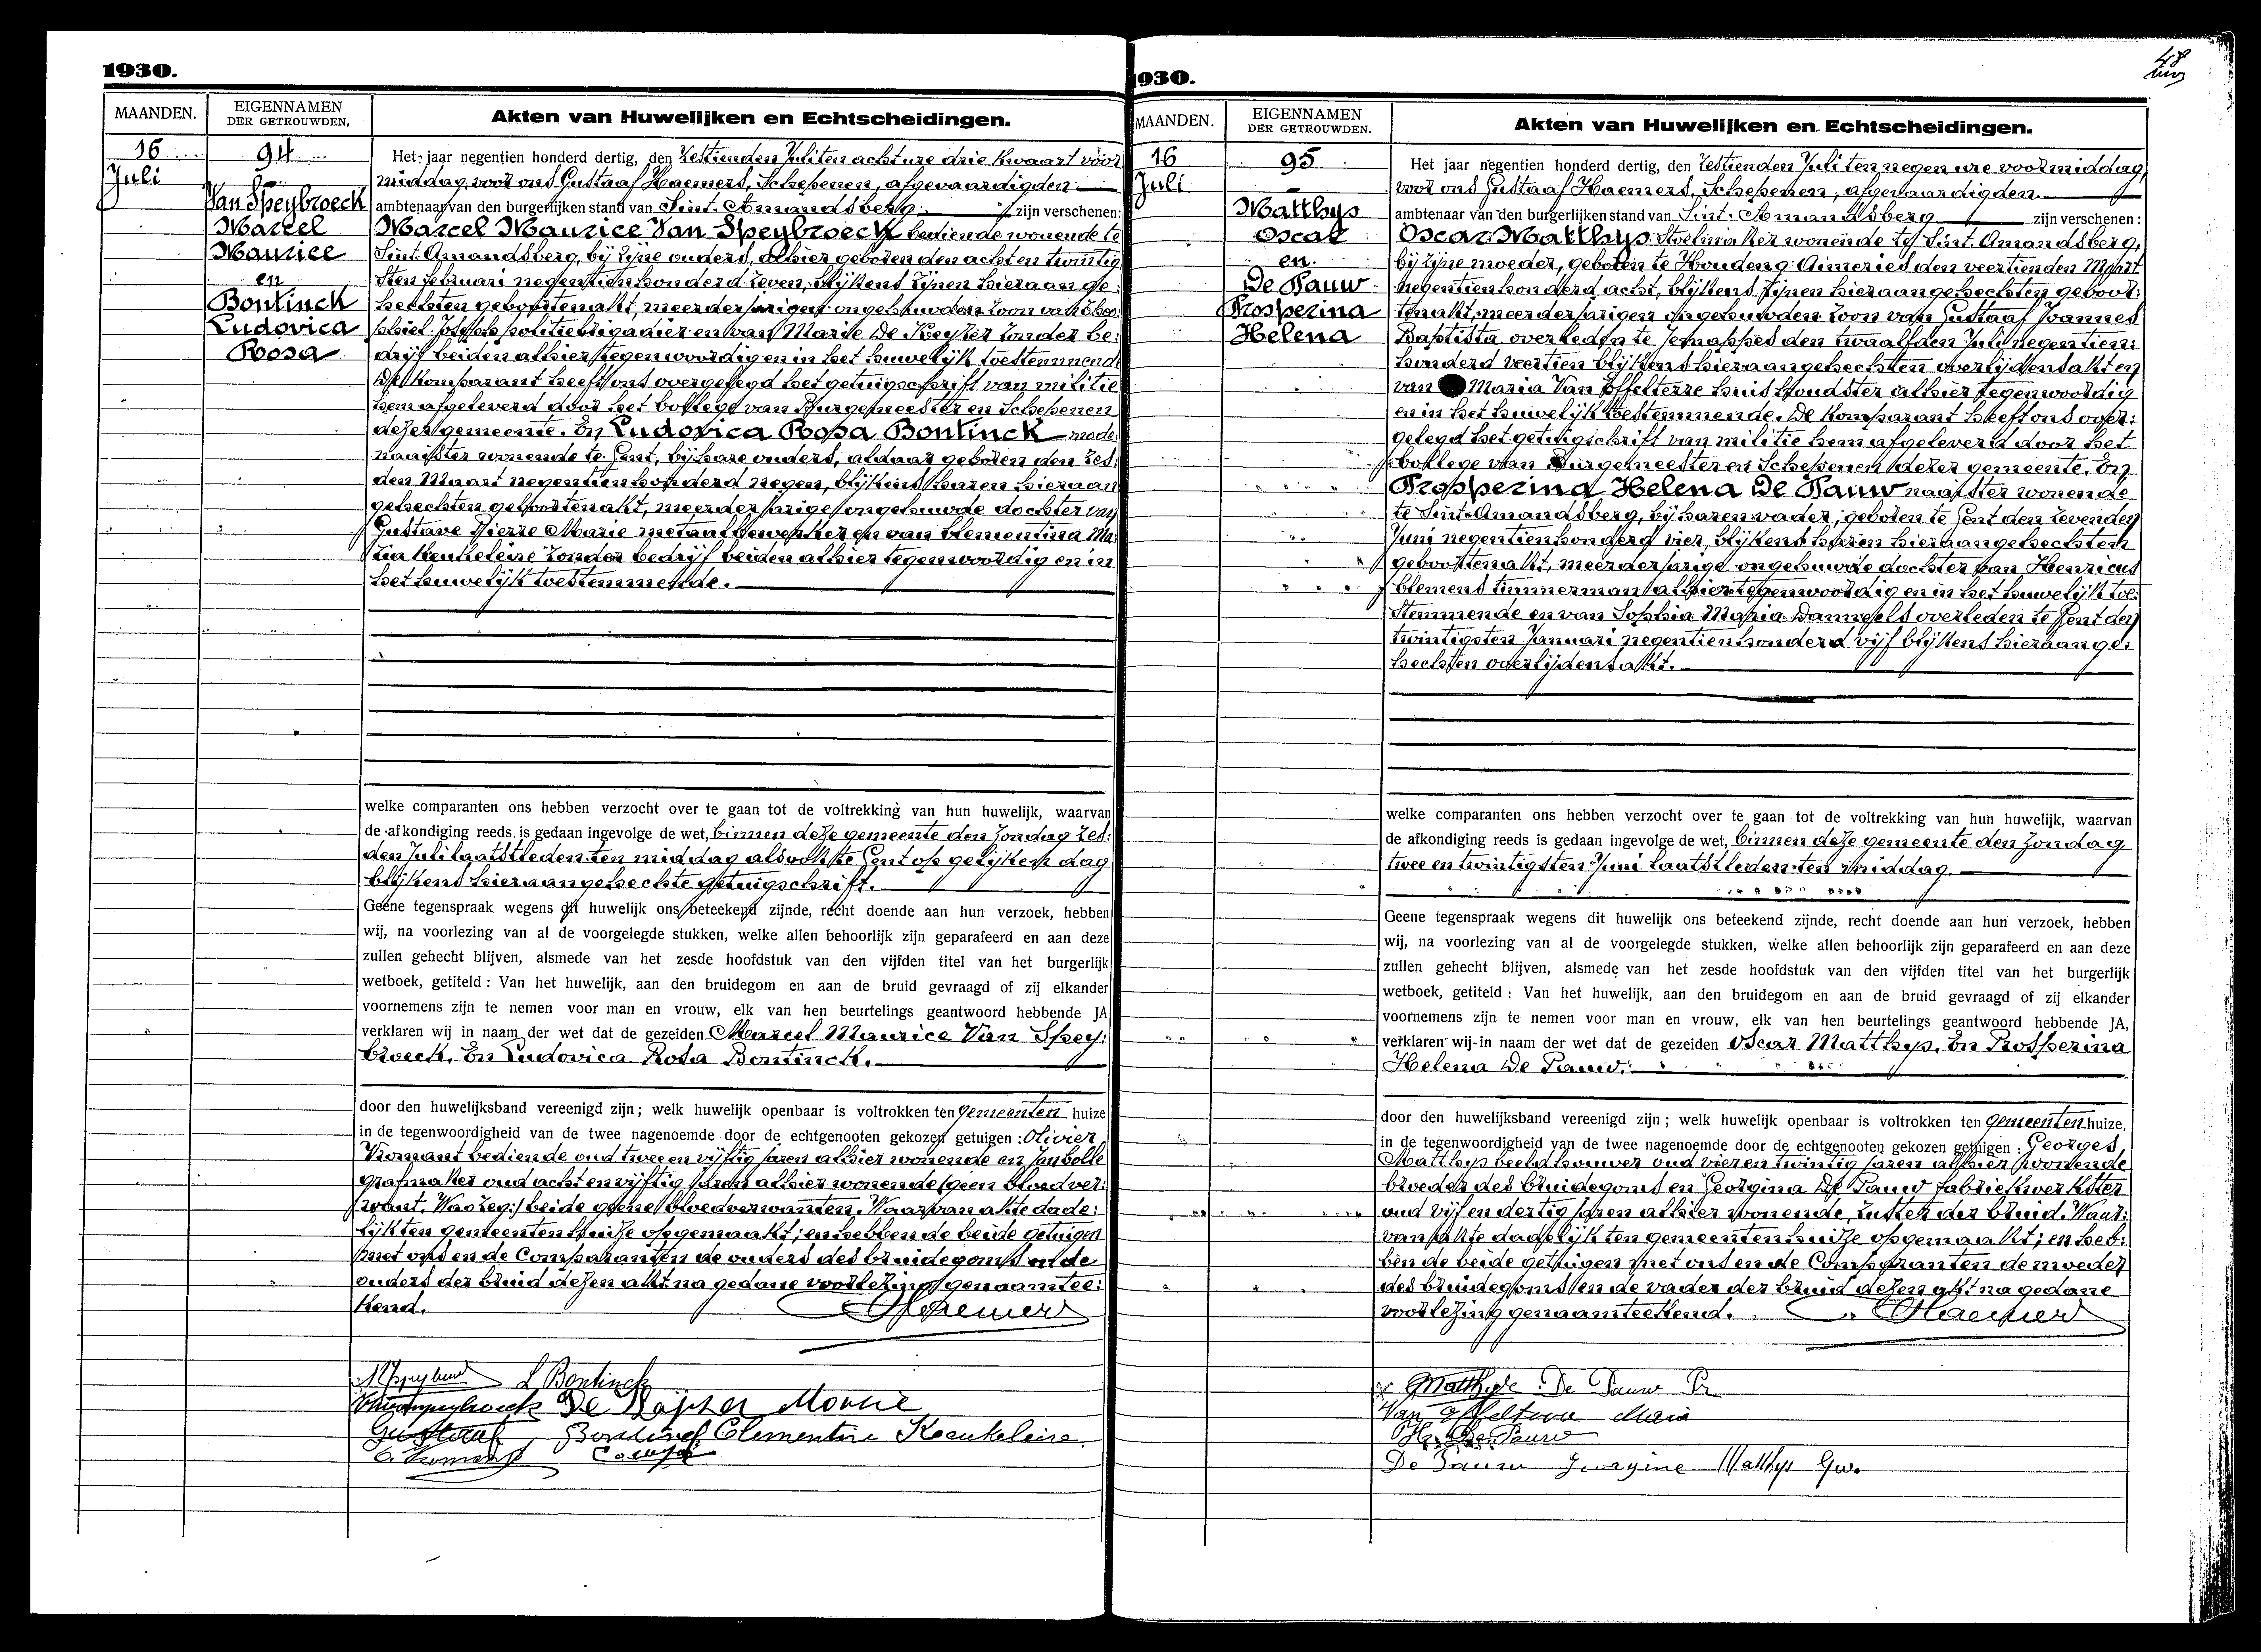 1930.
MAANDEN.
EIGENNAMEN
DER GETROUWDEN.
Akten van Huwelijken en Echtscheidingen.
16
Juli
94
Van Speybroeck
Marcel
Maurice
en
Bontinck
Ludovica
Rosa
Het jaar negentien honderd dertig, den Zestienden Juli ten acht ure drie kwaart voor
middag, voor ons Gustaaf Haemers, Schepenen, afgevaardigden
ambtenaar van den burgerlijken stand van Sint-Amandsberg zijn verschenen:
Marcel Maurice Van Speybroeck bediende wonende te
Sint-Amandsberg, bij zijne ouders, alhier geboren den achten twintig
sten februari negentienhonderd zeven, blijkens zijnen hieraange:
hechten geboortenakt, meerderjarigen ongehuwden zoon van Theo:
phiel Joseph politiebrigadier en van Marie De Keyzer zonder be:
drijf beiden alhier tegenwoordig en in het huwelijk toestemmend
De komparant heeft ons overgelegd het getuigschrift van militie
hem afgeleverd door het kollege van Burgemeester en Schepenen
dezer gemeente. En Ludovica Rosa Bontinck mode:
naaister wonende te Gent, bij hare ouders, aldaar geboren den zes:
den Maart negentienhonderd negen, blijkens haren hieraan
gehechten geboortenakt, meerderjarige ongehuwde dochter van
Gustave Pierre Marie metaalbewerker en van Clementina Ma:
ria Keukeleire zonder bedrijf beiden alhier tegenwoordig en in
het huwelijk toestemmende.
welke comparanten ons hebben verzocht over te gaan tot de voltrekking van hun huwelijk, waarvan
de afkondiging reeds is gedaan ingevolge de wet, binnen deze gemeente den Zondag zes:
den Juli laatstleden ten middag alsook te Gent op gelijken dag
blijkens hieraangehechte getuigschrift.
Geene tegenspraak wegens dit huwelijk ons beteekend zijnde, recht doende aan hun verzoek, hebben
wij, na voorlezing van al de voorgelegde stukken, welke allen behoorlijk zijn geparafeerd en aan deze
zullen gehecht blijven, alsmede van het zesde hoofdstuk van den vijfden titel van het burgerlijk
wetboek, getiteld : Van het huwelijk, aan den bruidegom en aan de bruid gevraagd of zij elkander
voornemens zijn te nemen voor man en vrouw, elk van hen beurtelings geantwoord hebbende JA
verklaren wij in naam der wet dat de gezeiden Marcel Maurice Van Spey:
broeck. En Ludovica Rosa Bontinck.
door den huwelijksband vereenigd zijn; welk huwelijk openbaar is voltrokken ten Gemeenten huize
in de tegenwoordigheid van de twee nagenoemde door de echtgenoten gekozen getuigen : Olivier
bediende oud twee en vijftig jaren alhier wonende en Jan Colle
grafmaker oud acht en vijftig jaren alhier wonende (geen bloedver:
want. Was zeg:) beide geene bloedverwanten. Waarvan akte dade:
lijk ten gemeenten huize opgemaakt; en hebben de beide getuigen
met ons en de Comparanten de ouders des bruidegoms en de
ouders der bruid dezen akt na gedane voorlezing genaamtee:
kend. Haemers
L Bontinck
De Keyzer Marie
Gustaaf Bontinck Clementine Keukeleire
1930.
48
MAANDEN.
EIGENNAMEN
DER GETROUWDEN.
Akten van Huwelijken en Echtscheidingen.
16
Juli
95
Matthys
Oscar
en
De Pauw
Prosperina
Helena
Het jaar negentien honderd dertig, den Zestienden Juli ten negen ure voormiddag
voor ons Gustaaf Haemers, Schepenen, afgevaardigden
ambtenaar van den burgerlijken stand van Sint-Amandsberg zijn verschenen :
Oscar Matthys Stoelmaker wonende te Sint-Amandsberg,
bij zijne moeder, geboren te Houdeng-Aimeries den veertienden Maart
negentienhonderd acht, blijkens zijnen hieraangehechten geboor:
tenakt, meerderjarigen ongehuwden zoon van Gustaaf Joannes
Baptista overleden te Jemappes den twaalfden Juli negentien:
honderd veertien blijkens hieraangehechten overlijdensakt en
van Maria Van Effelterre huishoudster alhier tegenwoordig
en in het huwelijk toestemmende. De komparant heeft ons over:
gelegd het getuigschrift van militie hem afgeleverd door het
kollege van Burgemeester en Schepenen dezer gemeente. En
Prosperina Helena De Pauw naaister wonende
te Sint-Amandsberg, bij haren vader, geboren te Gent den zevenden
Juni negentienhonderd vier, blijkens haren hieraangehechten
geboortenakt, meerderjarige ongehuwde dochter van Henricus
Clemens timmerman alhier tegenwoordig en in het huwelijk toe:
stemmende en van Sophia Maria Danneels overleden te Gent den
twintigsten Januari negentienhonderd vijf blijkens hieraange:
hechten overlijdensakt.
welke comparanten ons hebben verzocht over te gaan tot de voltrekking van hun huwelijk, waarvan
de afkondiging reeds is gedaan ingevolge de wet, binnen deze gemeente den Zondag
twee en twintigsten Juni laatstleden ten middag.
Geene tegenspraak wegens dit huwelijk ons beteekend zijnde, recht doende aan hun verzoek, hebben
wij, na voorlezing van al de voorgelegde stukken, welke allen behoorlijk zijn geparafeerd en aan deze
zullen gehecht blijven, alsmede van het zesde hoofdstuk van den vijfden titel van het burgerlijk
wetboek, getiteld : Van het huwelijk, aan den bruidegom en aan de bruid gevraagd of zij elkander
voornemens zijn te nemen voor man en vrouw, elk van hen beurtelings geantwoord hebbende JA,
verklaren wij in naam der wet dat de gezeiden Oscar Matthys. En Prosperina
Helena De Pauw.
door den huwelijksband vereenigd zijn ; welk huwelijk openbaar is voltrokken ten Gemeenten huize,
in de tegenwoordigheid van de twee nagenoemde door de echtgenoten gekozen getuigen : Georges
Matthys beeldhouwer oud vier en twintig jaren alhier wonende
broeder des bruidegoms en Georgina De Pauw fabriekwerkster
oud vijf en dertig jaren alhier wonende, zuster der bruid. Waar:
van akte dadelijk ten gemeenten huize opgemaakt; en heb:
ben de beide getuigen met ons en de Comparanten de moeder
des bruidegoms en de vader der bruid dezen akt na gedane
voorlezing genaamteekend. Haemers
Matthys De Pauw Pr
Van Effelterre Maria
H. De Pauw
De Pauw Georgine Matthys Geo.